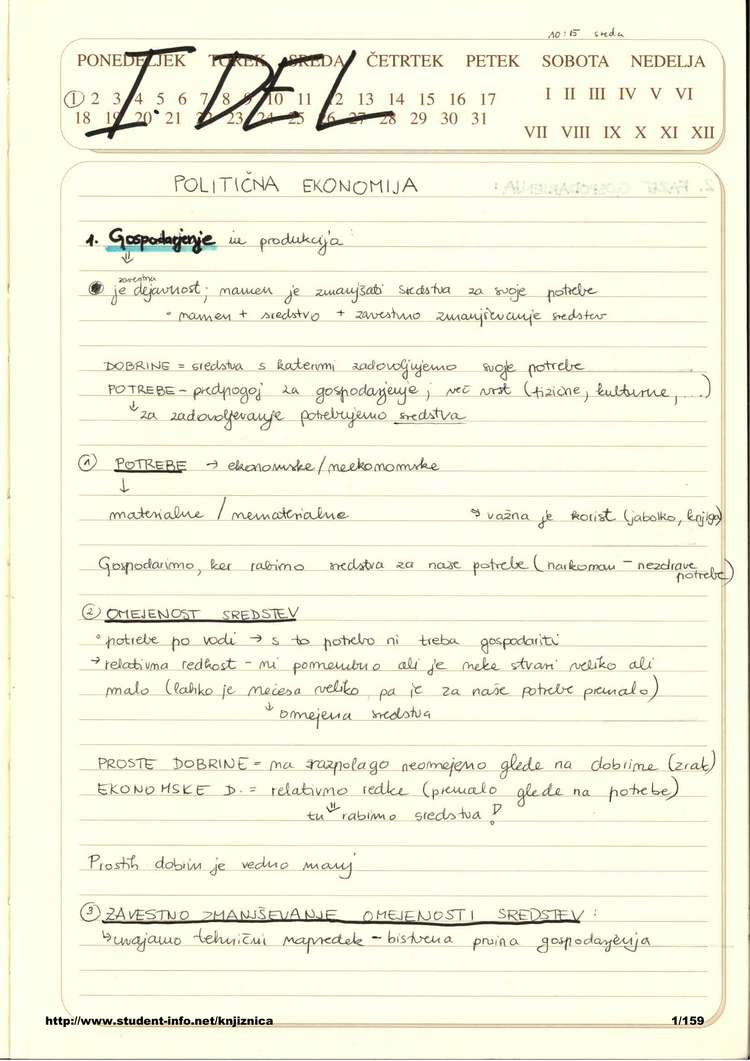 10:15 sreda
PONEDELJEK TOREK SREDA ČETRTEK PETEK SOBOTA NEDELJA
I. DEL
1 2 3 4 5 6 7 8 9 10 11 12 13 14 15 16 17
18 19 20 21 22 23 24 25 26 27 28 29 30 31
I II III IV V VI
VII VIII IX X XI XII
POLITIČNA EKONOMIJA
1. Gospodarjenje in produkcija
⇓
zavestna
je dejavnost; namen je zmanjšati sredstva za svoje potrebe
• namen + sredstvo + zavestno zmanjševanje sredstev
DOBRINE = sredstva s katerimi zadovoljujemo svoje potrebe
POTREBE – predpogoj za gospodarjenje; več vrst (fizične, kulturne, ...)
↳ za zadovoljevanje potrebujemo sredstva
① POTREBE → ekonomske/neekonomske
↓
materialne / nematerialne ↳ važna je korist (jabolko, knjiga)
Gospodarimo, ker rabimo sredstva za naše potrebe (narkoman – nezdrave
potrebe)
② OMEJENOST SREDSTEV
• potrebe po vodi → s to potrebo ni treba gospodariti
→ relativna redkost – ni pomembno ali je neke stvari veliko ali
malo (lahko je nečesa veliko, pa je za naše potrebe premalo)
↳ omejena sredstva
PROSTE DOBRINE = na razpolago neomejeno glede na dobrine (zrak)
EKONOMSKE D. = relativno redke (premalo glede na potrebe)
tu ⇓ rabimo sredstva!
Prostih dobrin je vedno manj
③ ZAVESTNO ZMANJŠEVANJE OMEJENOSTI SREDSTEV:
↳ uvajamo tehnični napredek – bistvena prvina gospodarjenja
http://www.student-info.net/knjiznica 1/159